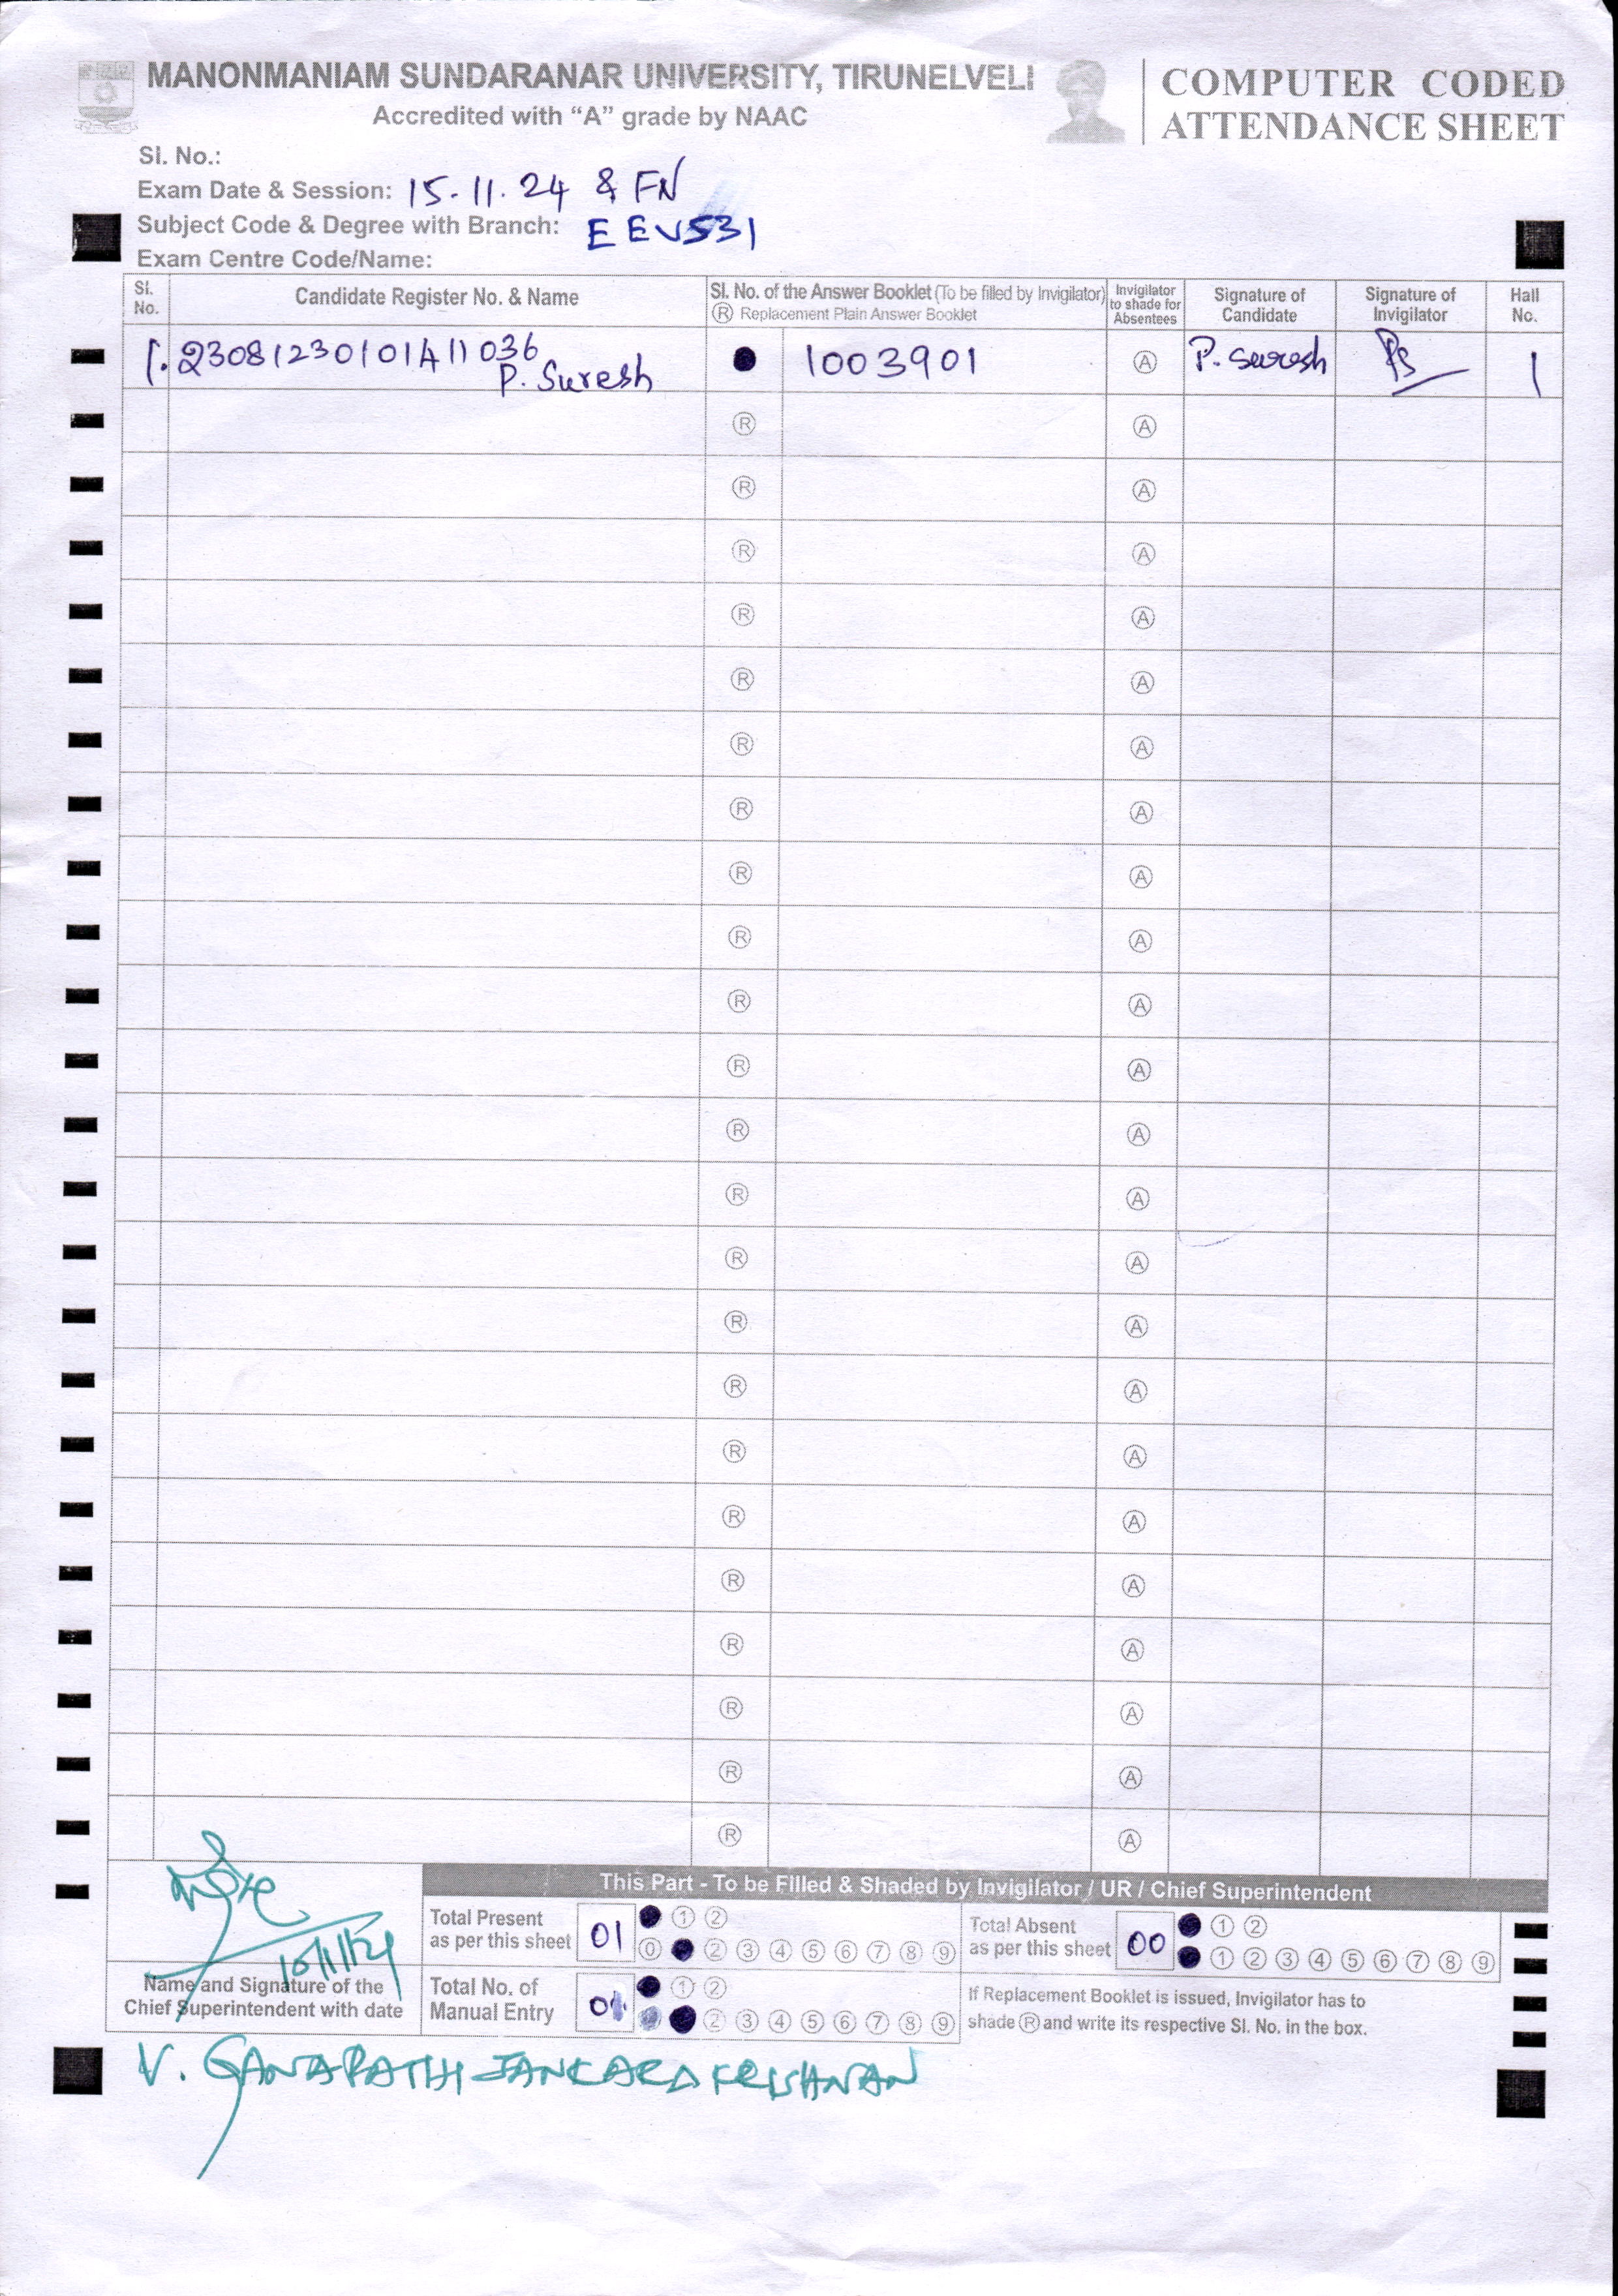 MANONMANIAM SUNDARANAR UNIVERSITY, TIRUNELVELI
Accredited with “A” grade by NAAC
COMPUTER CODED
ATTENDANCE SHEET
Sl. No.:
Exam Date & Session: 15.11.24 & FN
Subject Code & Degree with Branch: EEV531
Exam Centre Code/Name:
Sl. No. Candidate Register No. & Name Sl. No. of the Answer Booklet (To be filled by Invigilator) Ⓡ Replacement Plain Answer Booklet Invigilator to shade for Absentees Signature of Candidate Signature of Invigilator Hall No.
1. 23081230101411036 P. Suresh 1003901 Ⓐ P. Suresh 1
Ⓡ Ⓐ
Ⓡ Ⓐ
Ⓡ Ⓐ
Ⓡ Ⓐ
Ⓡ Ⓐ
Ⓡ Ⓐ
Ⓡ Ⓐ
Ⓡ Ⓐ
Ⓡ Ⓐ
Ⓡ Ⓐ
Ⓡ Ⓐ
Ⓡ Ⓐ
Ⓡ Ⓐ
Ⓡ Ⓐ
Ⓡ Ⓐ
Ⓡ Ⓐ
Ⓡ Ⓐ
Ⓡ Ⓐ
Ⓡ Ⓐ
Ⓡ Ⓐ
Ⓡ Ⓐ
Ⓡ Ⓐ
Ⓡ Ⓐ
This Part - To be Filled & Shaded by Invigilator / UR / Chief Superintendent
Total Present as per this sheet 01 ① ②
⓪ ② ③ ④ ⑤ ⑥ ⑦ ⑧ ⑨
Total Absent as per this sheet 00 ① ②
① ② ③ ④ ⑤ ⑥ ⑦ ⑧ ⑨
15/11/24
Name and Signature of the
Chief Superintendent with date
Total No. of Manual Entry 01 ① ②
② ③ ④ ⑤ ⑥ ⑦ ⑧ ⑨
If Replacement Booklet is issued, Invigilator has to
shade Ⓡ and write its respective Sl. No. in the box.
V. GANAPATHI SANKARA KRISHNAN